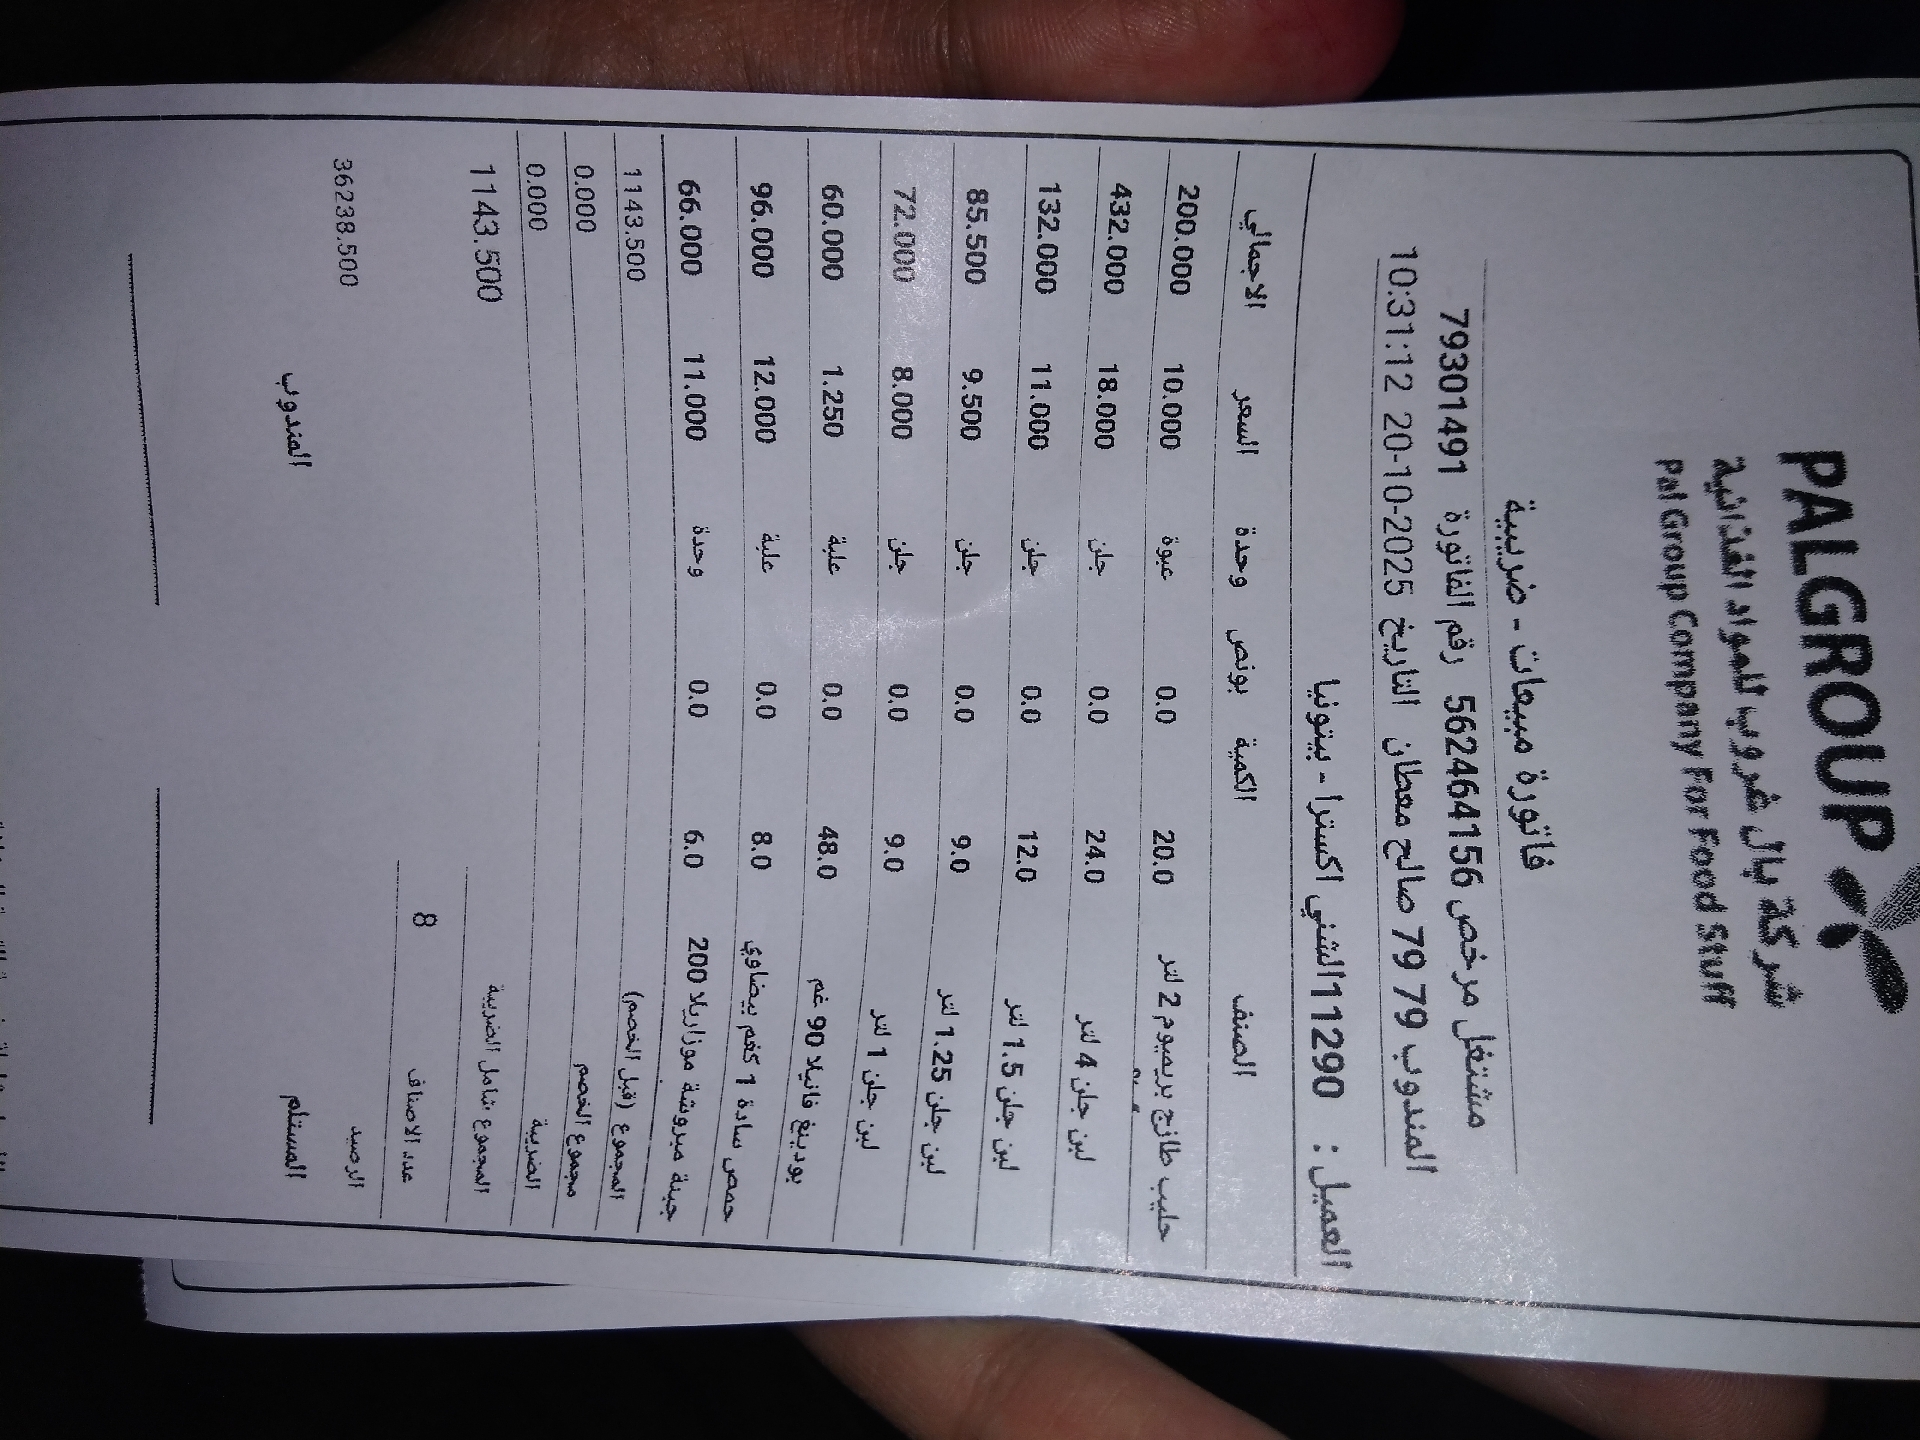 PALGROUP
شركة بال غروب للمواد الغذائية
Pal Group Company For Food Stuff
فاتورة مبيعات - ضريبية
مشتغل مرخص 562464156 رقم الفاتورة 79301491
المندوب 79 79 صالح معطان التاريخ 20-10-2025 10:31:12
العميل : 11290 الشني اكسترا - بيتونيا
الصنف الكمية بونص وحدة السعر الاجمالي
حليب طازج بريميوم 2 لتر 20.0 0.0 عبوة 10.000 200.000
لبن جلن 4 لتر 24.0 0.0 جلن 18.000 432.000
لبن جلن 1.5 لتر 12.0 0.0 جلن 11.000 132.000
لبن جلن 1.25 لتر 9.0 0.0 جلن 9.500 85.500
لبن جلن 1 لتر 9.0 0.0 جلن 8.000 72.000
بودينغ فانيلا 90 غم 48.0 0.0 علبة 1.250 60.000
حمص سادة 1 كغم بيضاوي 8.0 0.0 علبة 12.000 96.000
جبنة مبروشة موزاريلا 200 6.0 0.0 وحدة 11.000 66.000
المجموع (قبل الخصم) 1143.500
مجموع الخصم 0.000
الضريبة 0.000
المجموع شامل الضريبة 1143.500
عدد الاصناف 8
الرصيد 36238.500
المستلم المندوب